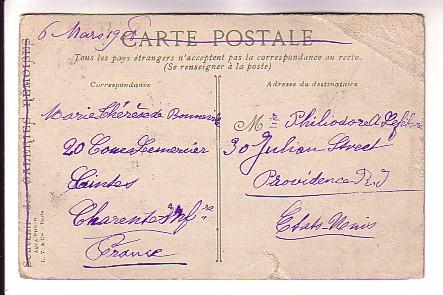 6 Mars 19
CARTE POSTALE
Tous les pays étrangers n'acceptent pas la correspondance au recto.
(Se renseigner à la poste)
Correspondance
Marie Thérèse de
20 Cours Lemercier
Saintes
Charente Infre
France
Adresse du destinataire
Mr Philiodor A Lefebvre
30 Julian Street
Providence R. I
Etats-Unis
Souvenir des GALERIES REMOISES